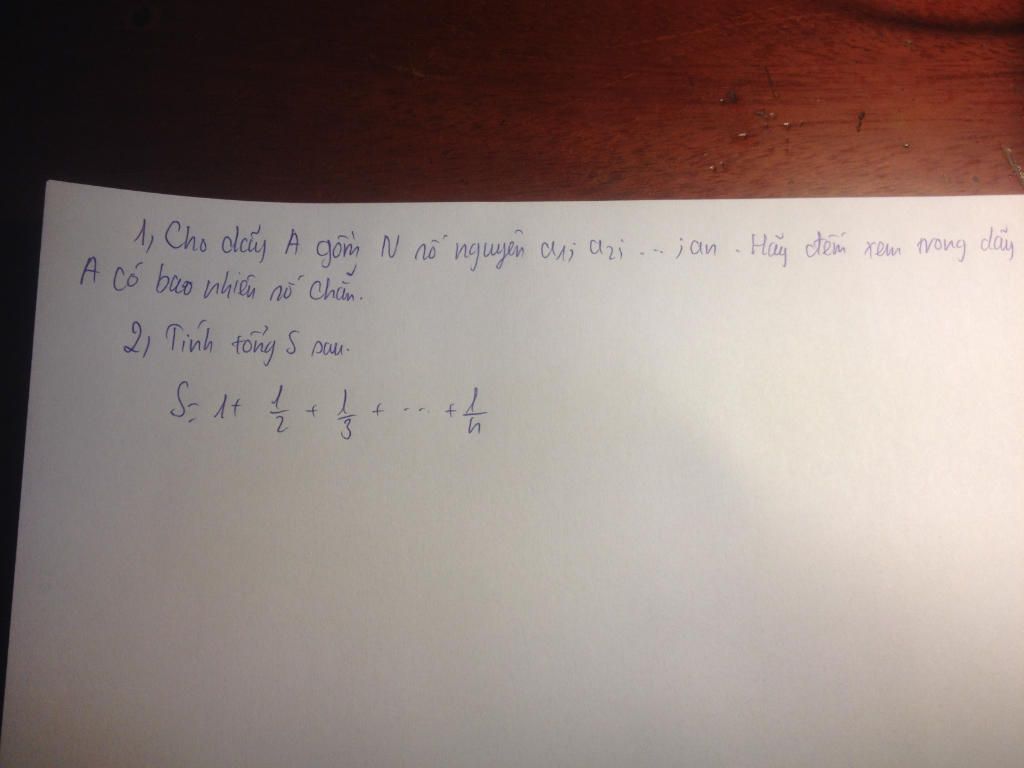 1, Cho dãy A gồm N số nguyên a1; a2; ...; an. Hãy đếm xem trong dãy
A có bao nhiêu số chẵn.
2, Tính tổng S sau.
S = 1 + 1/2 + 1/3 + ... + 1/n